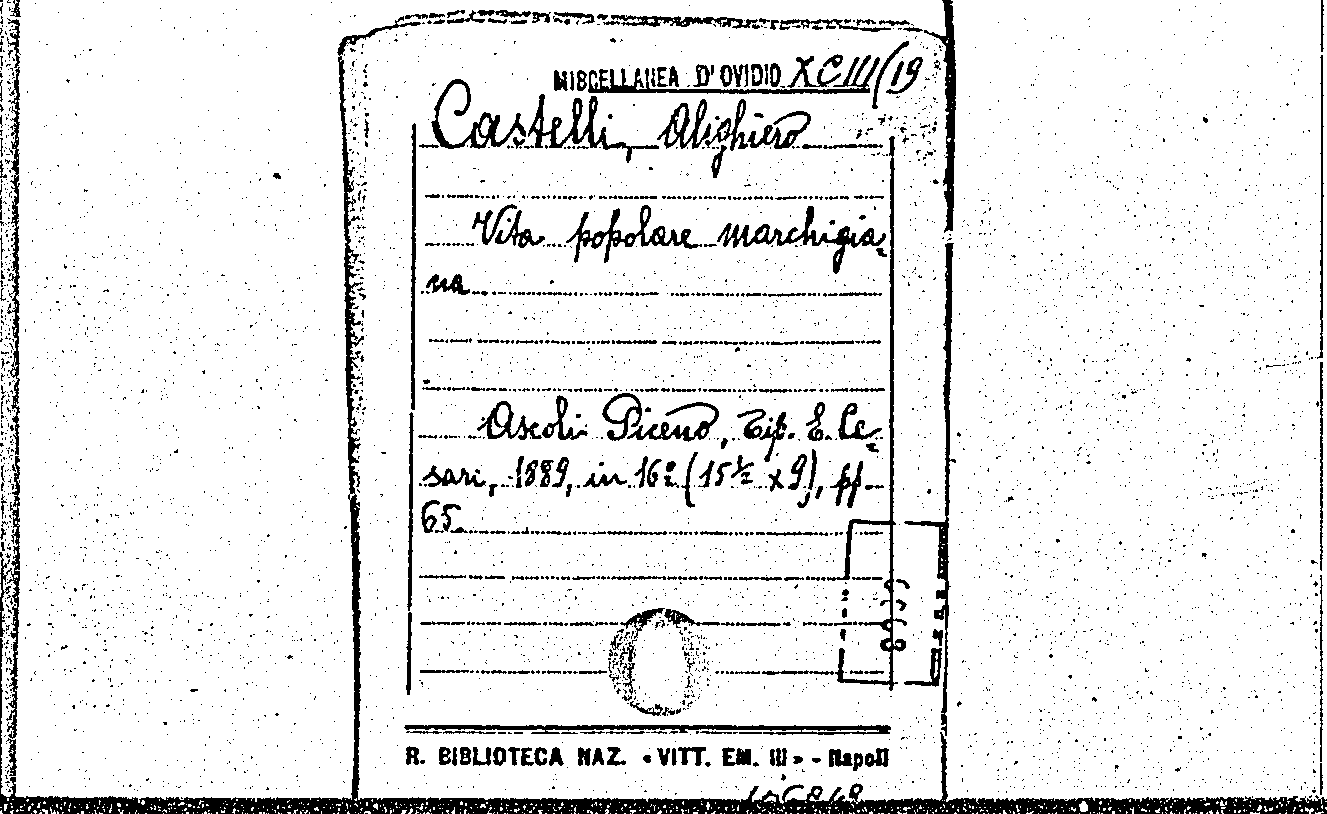 MISCELLANEA D'OVIDIO XCIII/19
Castelli, Alighiero
Vita popolare marchigia-
na
Ascoli Piceno, Tip. E. Ce-
sari, 1889, in 16º (15½ x 9), pp.
65.
R. BIBLIOTECA NAZ. «VITT. EM. III» - Napoli